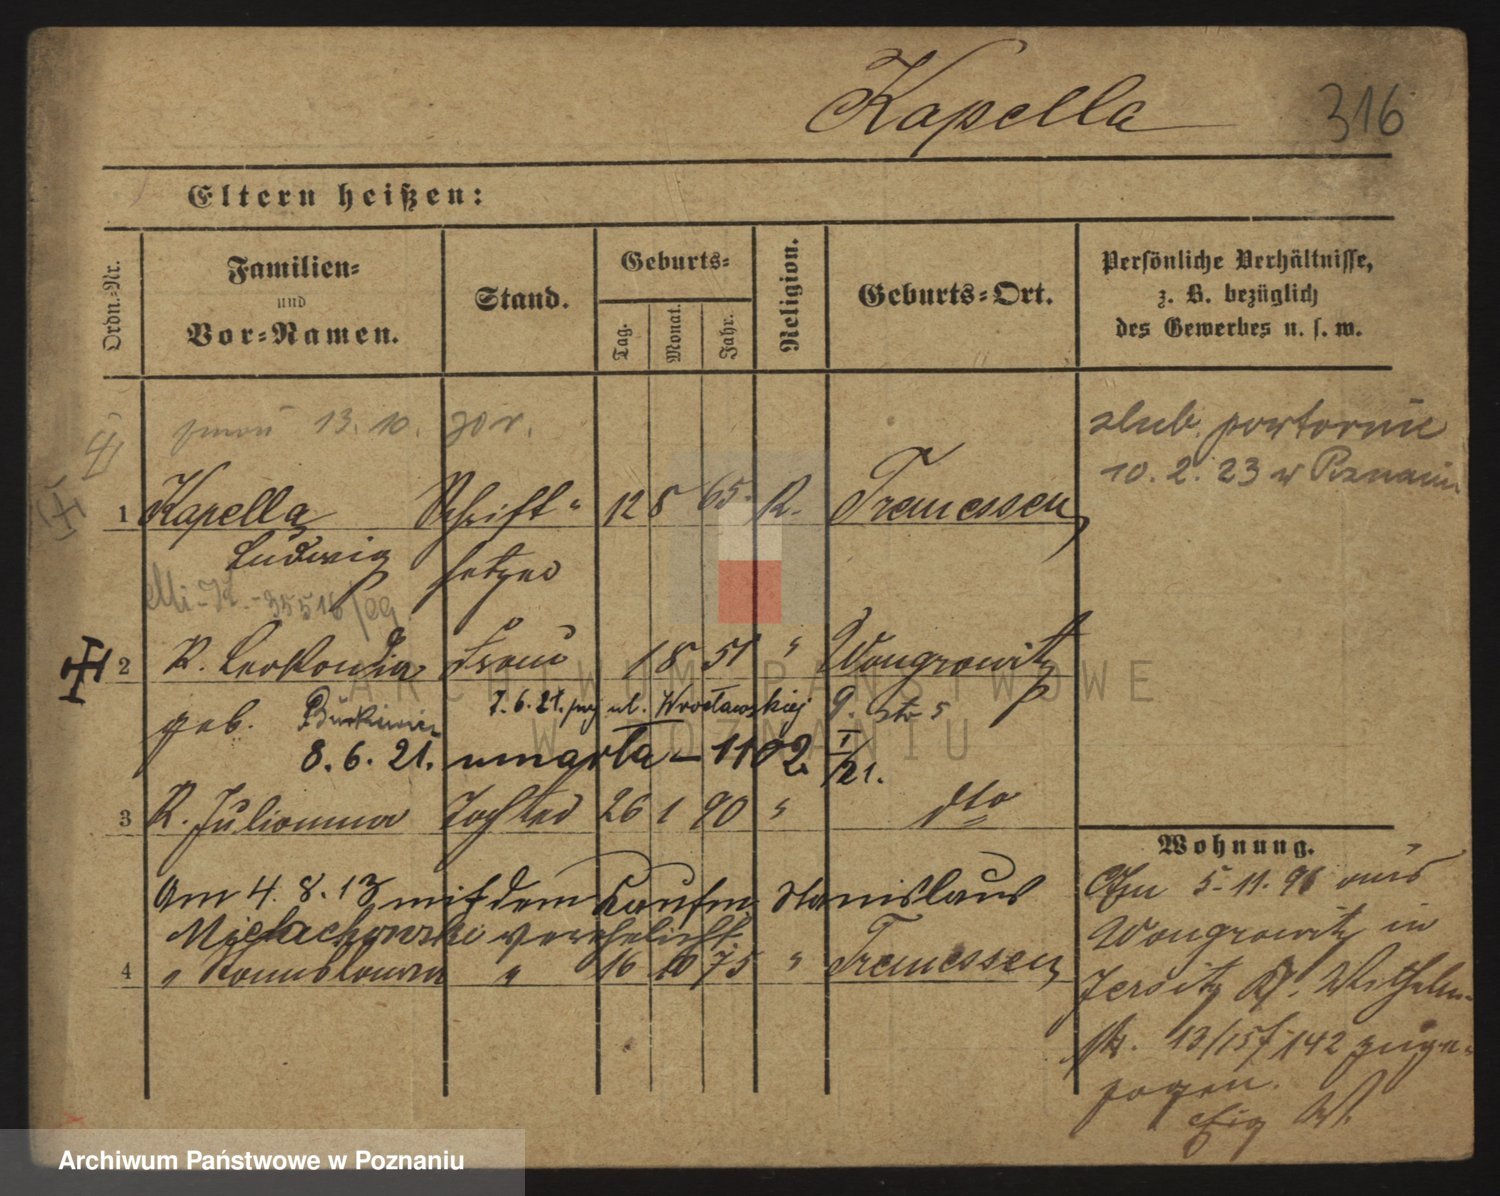 Kapella 316
Eltern heißen:
Ordn.-Nr. Familien- und Vor-Namen. Stand. Geburts- Tag. Monat. Jahr. Religion. Geburts-Ort. Persönliche Verhältnisse, z. B. bezüglich des Gewerbes u. s. w.
13. 10. r. ślub powtórnie
10. 2. 23 w
1 Kapella Schrift- 12 8 65. K. Tremessen
Ludwig setzer
35516/09
2 K. Leokondia Frau 1 8 51 " Wongrowitz
geb. 7. 6. 21. przy ul. Wrocławskiej 9.
8. 6. 21. umarła – 1102 I/21.
3 K. Julianna Tochter 26 1 90 " dto
Wohnung.
Am 4. 8. 13 mit dem Kaufm. Stanislaus
verehelicht.
4 " " 16 10 75 " Tremessen
Am 5. 11. 96 aus
Wongrowitz in
Jersitz Wilhelm-
str. 13/15 142 zuge-
zogen.
ARCHIWUM PAŃSTWOWE
W POZNANIU
Archiwum Państwowe w Poznaniu